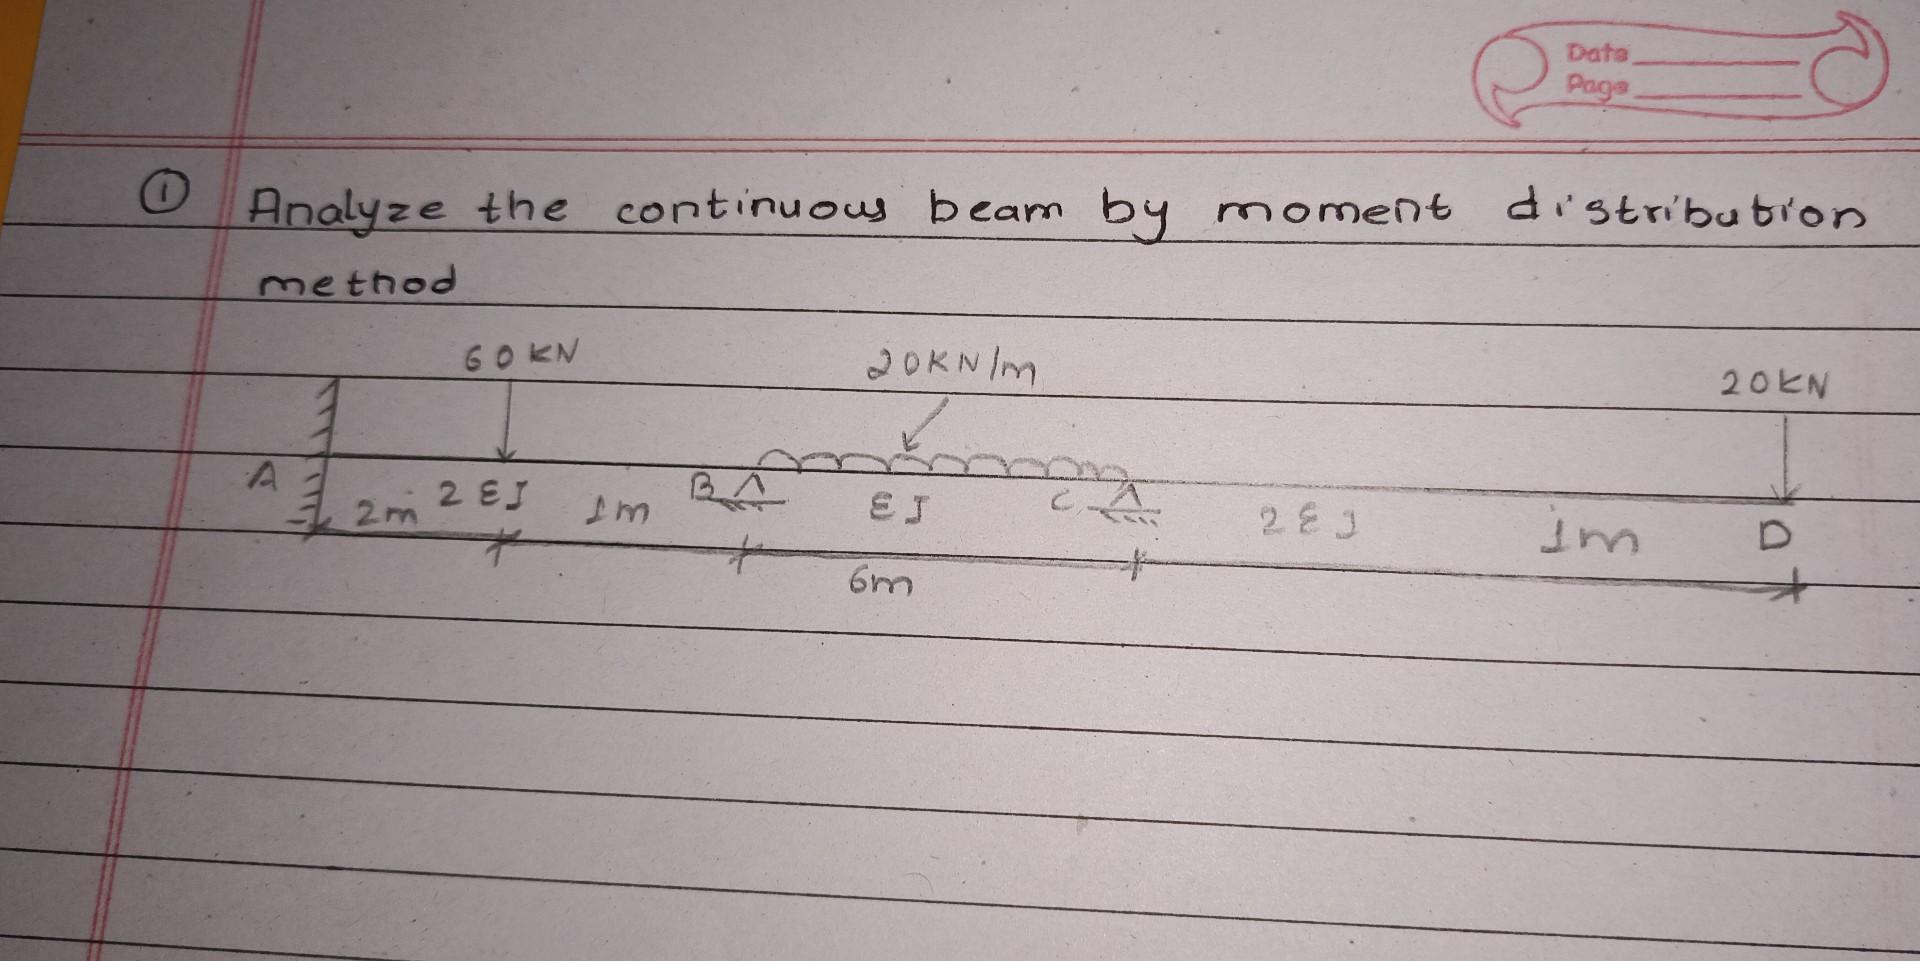 Date
Page
① Analyze the continuous beam by moment distribution
method
60 KN 20KN/m 20KN
A 2m 2EI 1m B EI C 2EI 1m D
6m